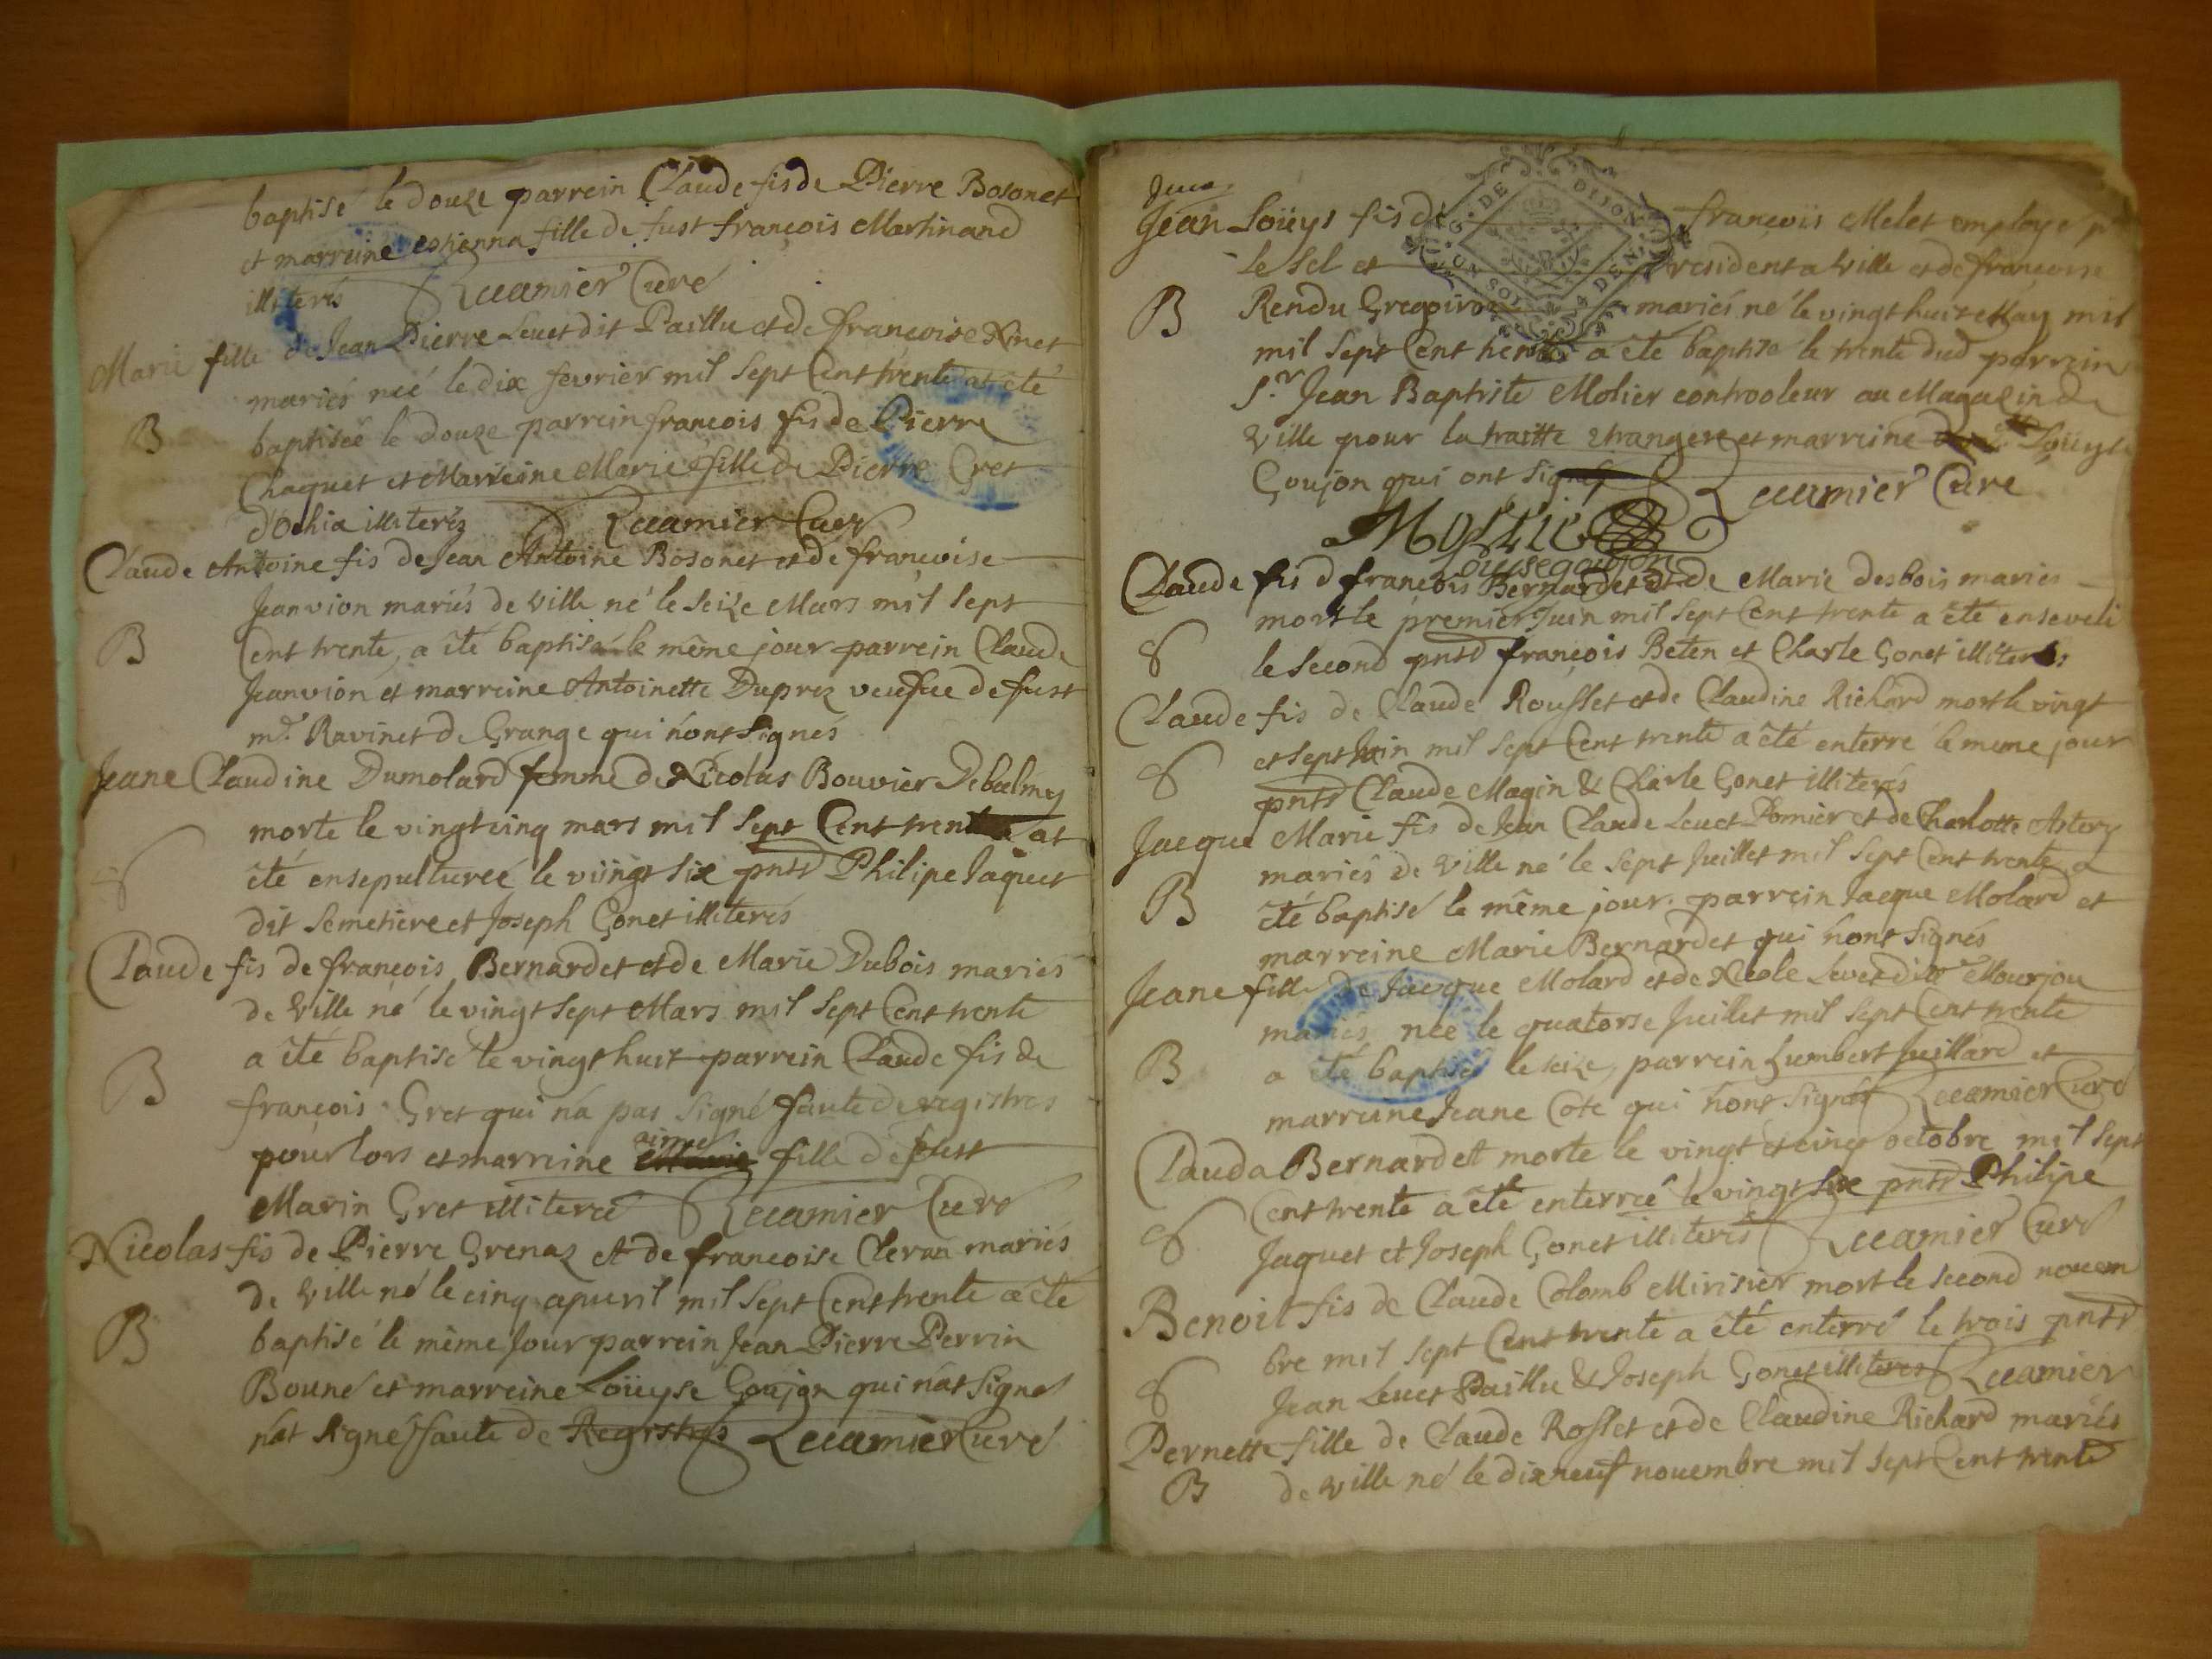 baptisé le douze parrein Claude fis de Pierre Bosonet
et marreine estienna fille de fust françois Martinand
illiterés Récamier Curé
Marie fille de Jean Pierre Levet dit Paillu et de francoise Ninet
mariés neé le dix fevrier mil sept Cent trente at èté
B baptiseé le douze parrein francois fis de Pierre
Chaquet et Marreine Marie fille de Pierre Gret
d'Ochia illiterés Récamier Curé
Claude Antoine fis de Jean Antoine Bosonet et de francoise
Jeanvion mariés de Ville né le seize Mars mil sept
B Cent trente, a èté baptisé le même jour parrein Claude
Jeanvion et marreine Antoinette Duprez veufue de fust
mr. Ravinet de Grange qui n'ont signés
Jeane Claudine Dumolard femme de Nicolas Bouvier Debalmey
morte le vingt cinq mars mil sept Cent trente at
S èté ensepultureé le viingt six pntd Philipe Jaquet
dit Semetiere et Joseph Gonet illiterés
Claude fis de françois Bernardet et de Marie Dubois mariés
de Ville né le vingt sept Mars mil sept Cent trente
a èté baptisé le vingt huit parrein Claude fis de
B françois Gret qui n'a pas signé faute de registres
pour lors et marreine Marie aimé fille de fust
Marin Gret illitereé Récamier Curé
Nicolas fis de Pierre Grenaz et de francoise Cleran mariés
de Ville né le cinq apvril mil sept Cent trente a èté
B baptisé le même Jour parrein Jean Pierre Perrin
Bouné et marreine Loüyse Goujon qui n'at signé
n'at signé faute de Registres Récamier Curé
Jean Loüys fis de françois Melet employe pr
le sel et resident a Ville et de francoise
B Rendu Gregoire mariés né le vingt huit May mil
mil sept Cent trente a èté baptisé le trente dud parrein
Sr. Jean Baptiste Molier controoleur au Magazin de
Ville pour la traitte etrangere et marreine Loüyse
Goujon qui ont signés Récamier Curé
Louise goujon
Claude fis d francois Bernardet et de Marie desbois mariés
mort le premier Juin mil sept Cent trente a èté enseveli
S le second pntd françois Beten et Charle Gonet illiterés
Claude fis de Claude Rousset et de Claudine Richard mort le vingt
et sept Juin mil sept Cent trente a èté enterré le meme jour
S pntd Claude Magin & Charle Gonet illiterés
Jacque Marie fis de Jean Claude Levet Pomier et de Charlotte Astery
mariés de Ville né le sept Juillet mil sept Cent trente a
B èté baptisé le même jour. parrein Jacque Molard et
marreine Marie Bernardet qui n'ont signés
Jeane fille de Jacque Molard et de Nicole Levet ditte Mourjou
mariés née le quatorse Juillet mil sept Cent trente
B a èté baptisée le seize, parrein humbert Juillard et
marreine Jeane Cote qui n'ont signés Récamier Curé
Clauda Bernardet morte le vingt et cinq octobre mil sept
Cent trente a èté enterreé le vingt six pntd Philipe
S Jaquet et Joseph Gonet illiterés Récamier Curé
Benoit fis de Claude Colomb Mirisier mort le second novem
bre mil sept Cent trente a èté enterré le trois pntd
S Jean Levet Paillu & Joseph Gonet illiterés Récamier
Pernette fille de Claude Rosset et de Claudine Richard mariés
B de Ville né le dixneuf novembre mil sept Cent trente